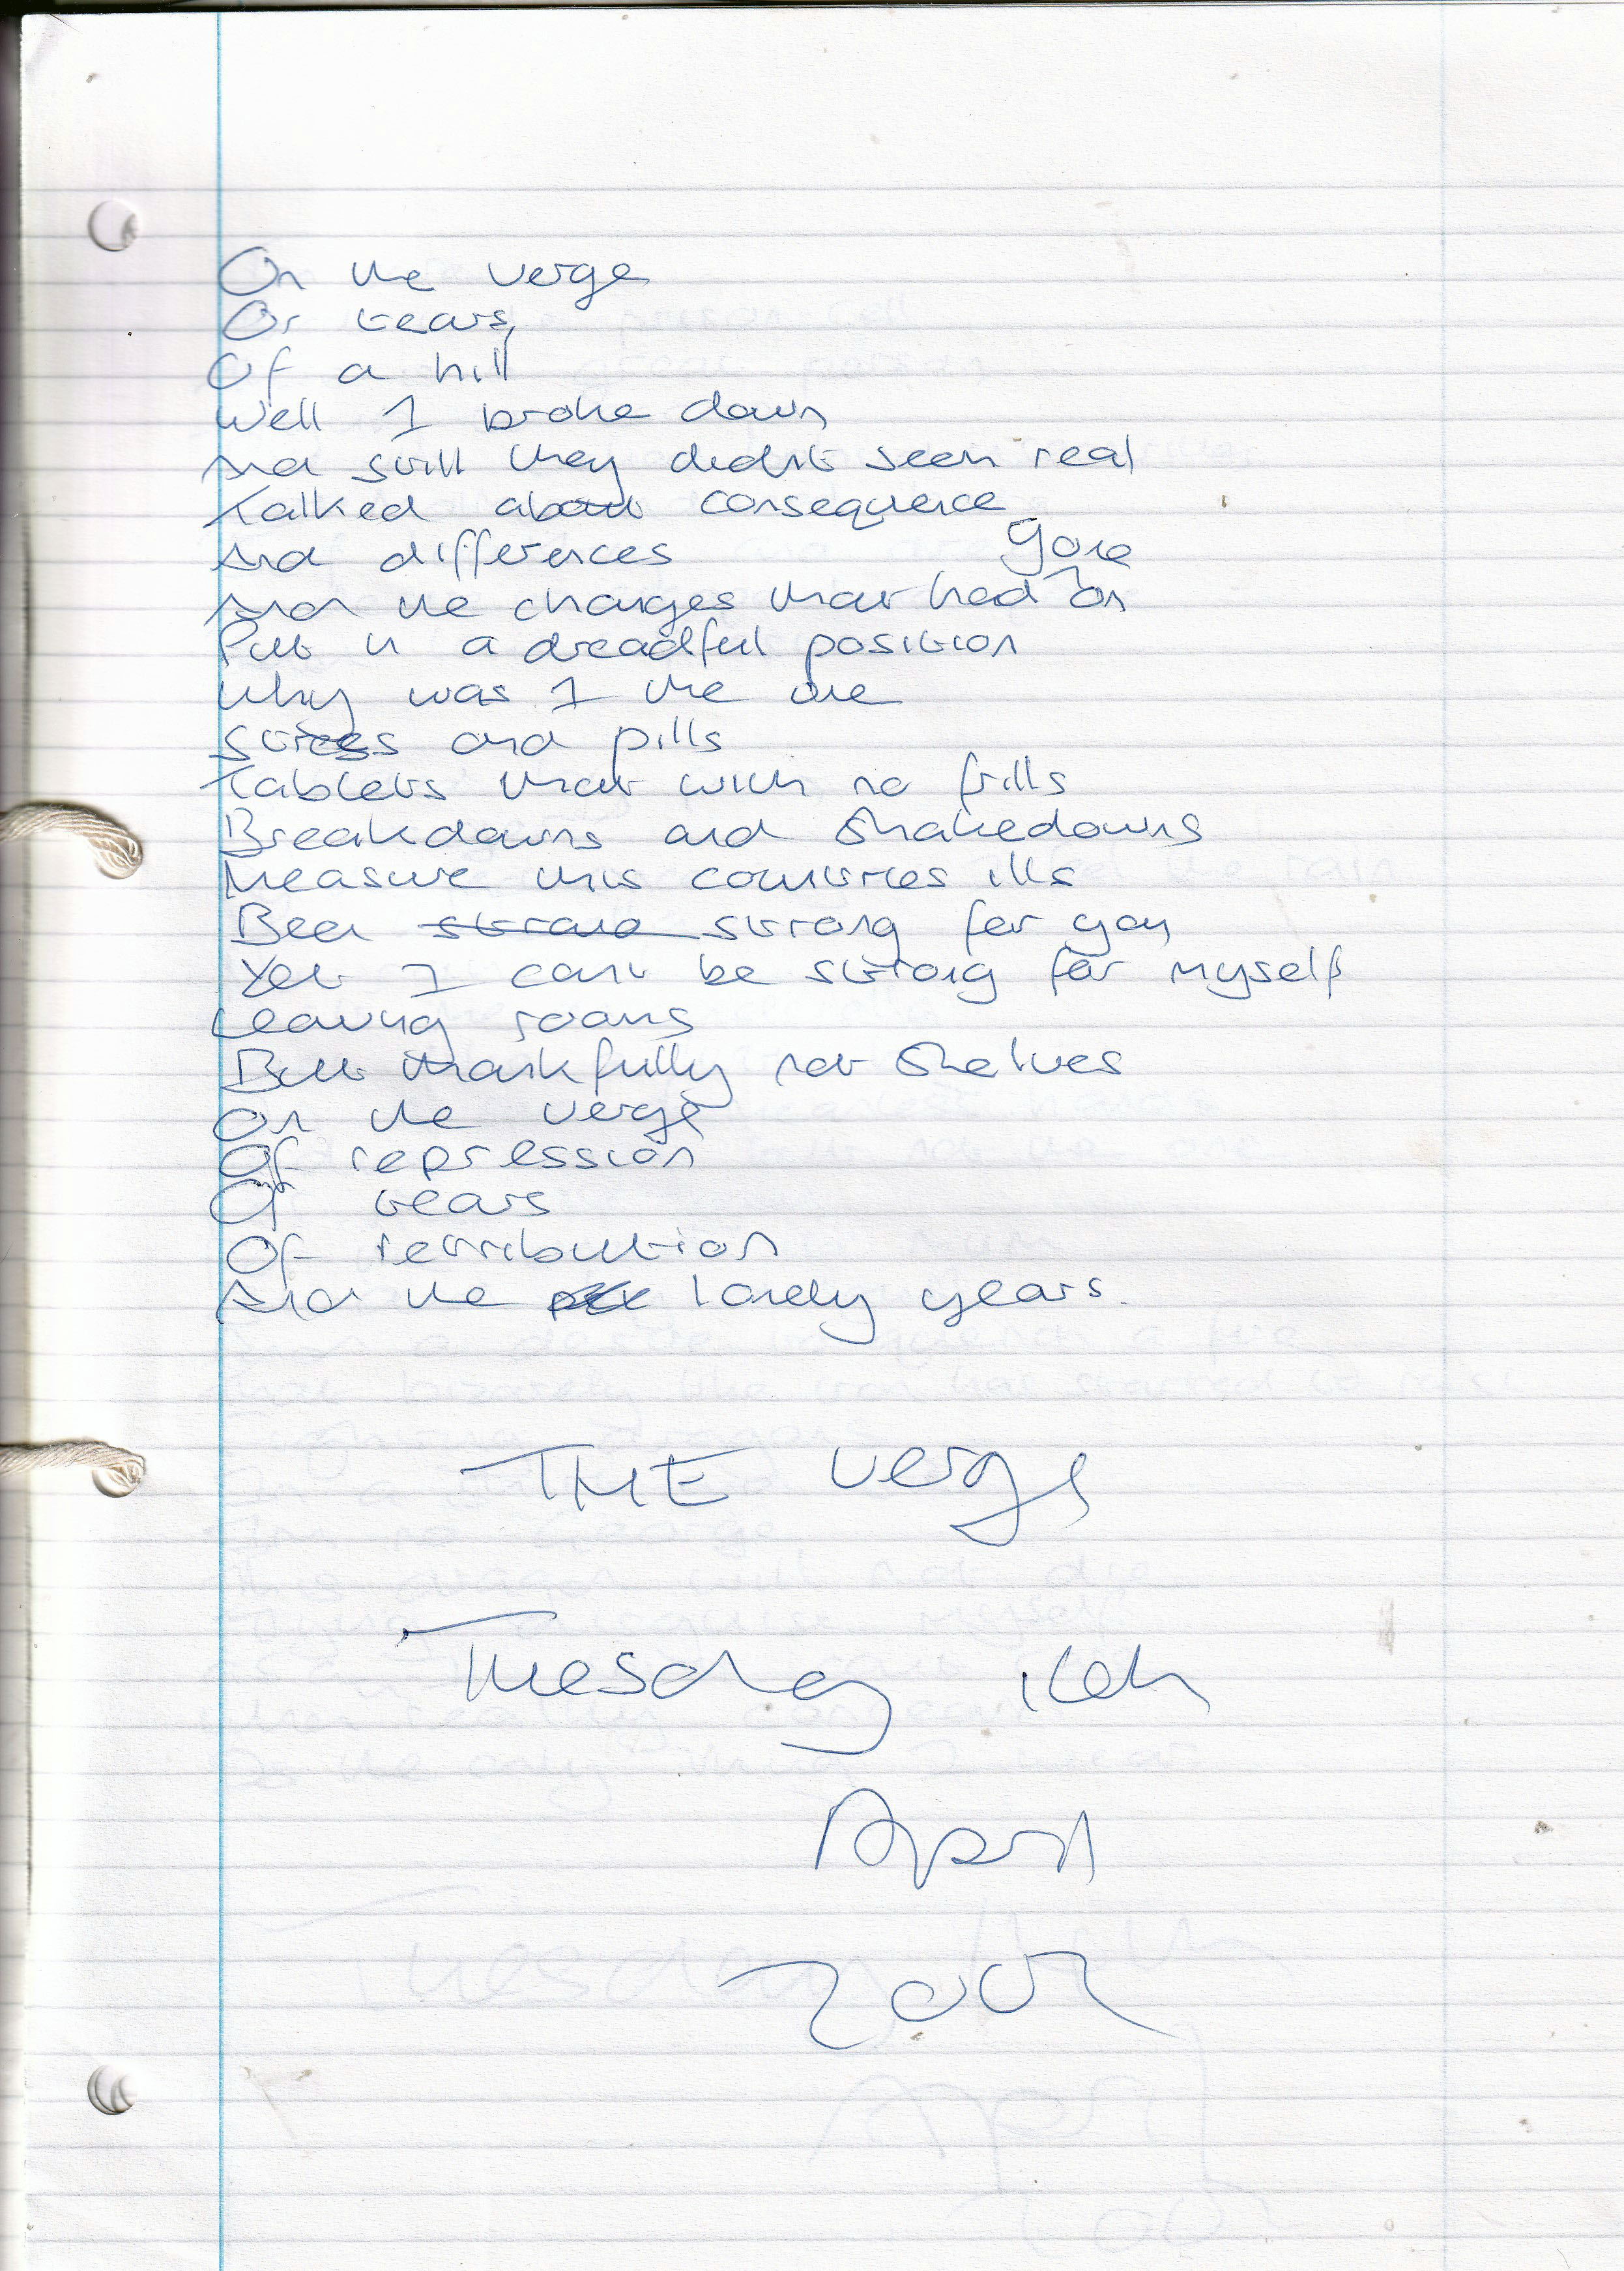 On the verge
Or tears,
Of a hill
Well I broke down
And still they didn't seem real
Talked about consequence
And differences
And the changes that had gone on
Put in a dreadful position
Why was I the one
Stress and pills
Tablets that with no frills
Breakdowns and Shakedowns
Measure this countries ills
Been strong for you
Yet I cant be strong for myself
Leaving rooms
But thankfully not Shelves
On the verge
Of repression
Of tears
Of retribution
And the lonely years.
THE verge
Tuesday
April